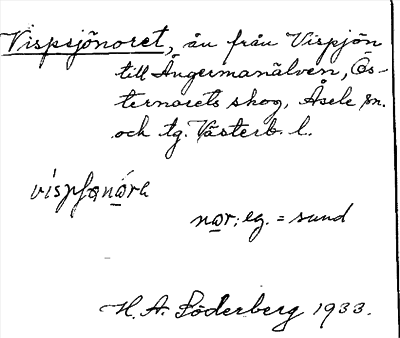 Vispsjönoret, ån från Vispsjön
till Ångermanälven, Ös-
ternorets skog, Åsele sn.
och tg. Västerb. l.
nor; eg. = sund
H. A. Söderberg 1933.